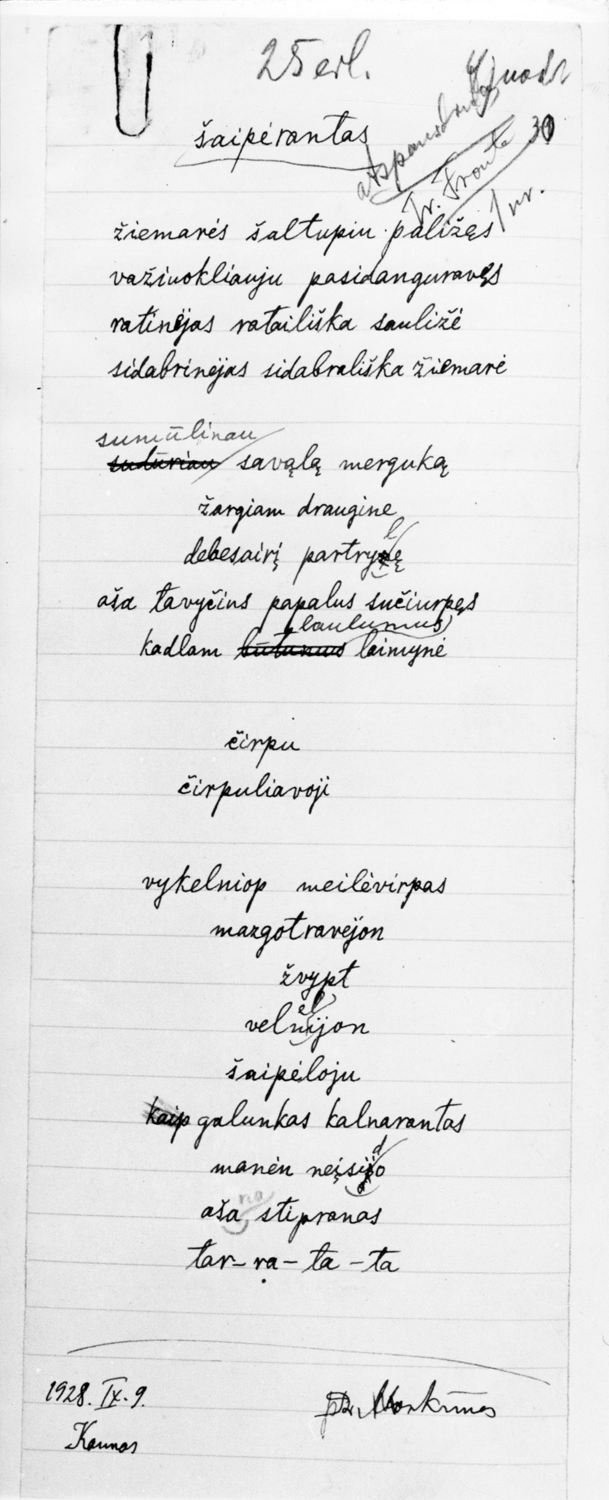 25 erl.
šaipėrantas
atspausdinta
Tr. Fronte
1 nr.
30
žiemarės šaltupiu paližęs
važiuokliauju pasidanguravęs
ratinėjas ratailiška sauližė
sidabrinėjas sidabrališka žiemarė
sumūlinau
sudūriau savąlą merguką
žargiam draugine
l
debesairį partrynę
aša tavyčius papalus sučiurpęs
laulumus
kadlam laimynė
čirpu
čirpuliavoji
vykelniop meilėvirpas
mazgotravėjon
žvypt
el
velnijon
šaipėloju
kaip galunkas kalnarantas
d
manėn neįsižo
na
aša stipranas
tar-ra-ta-ta
1928. IX. 9.
Kaunas
Morkūnas